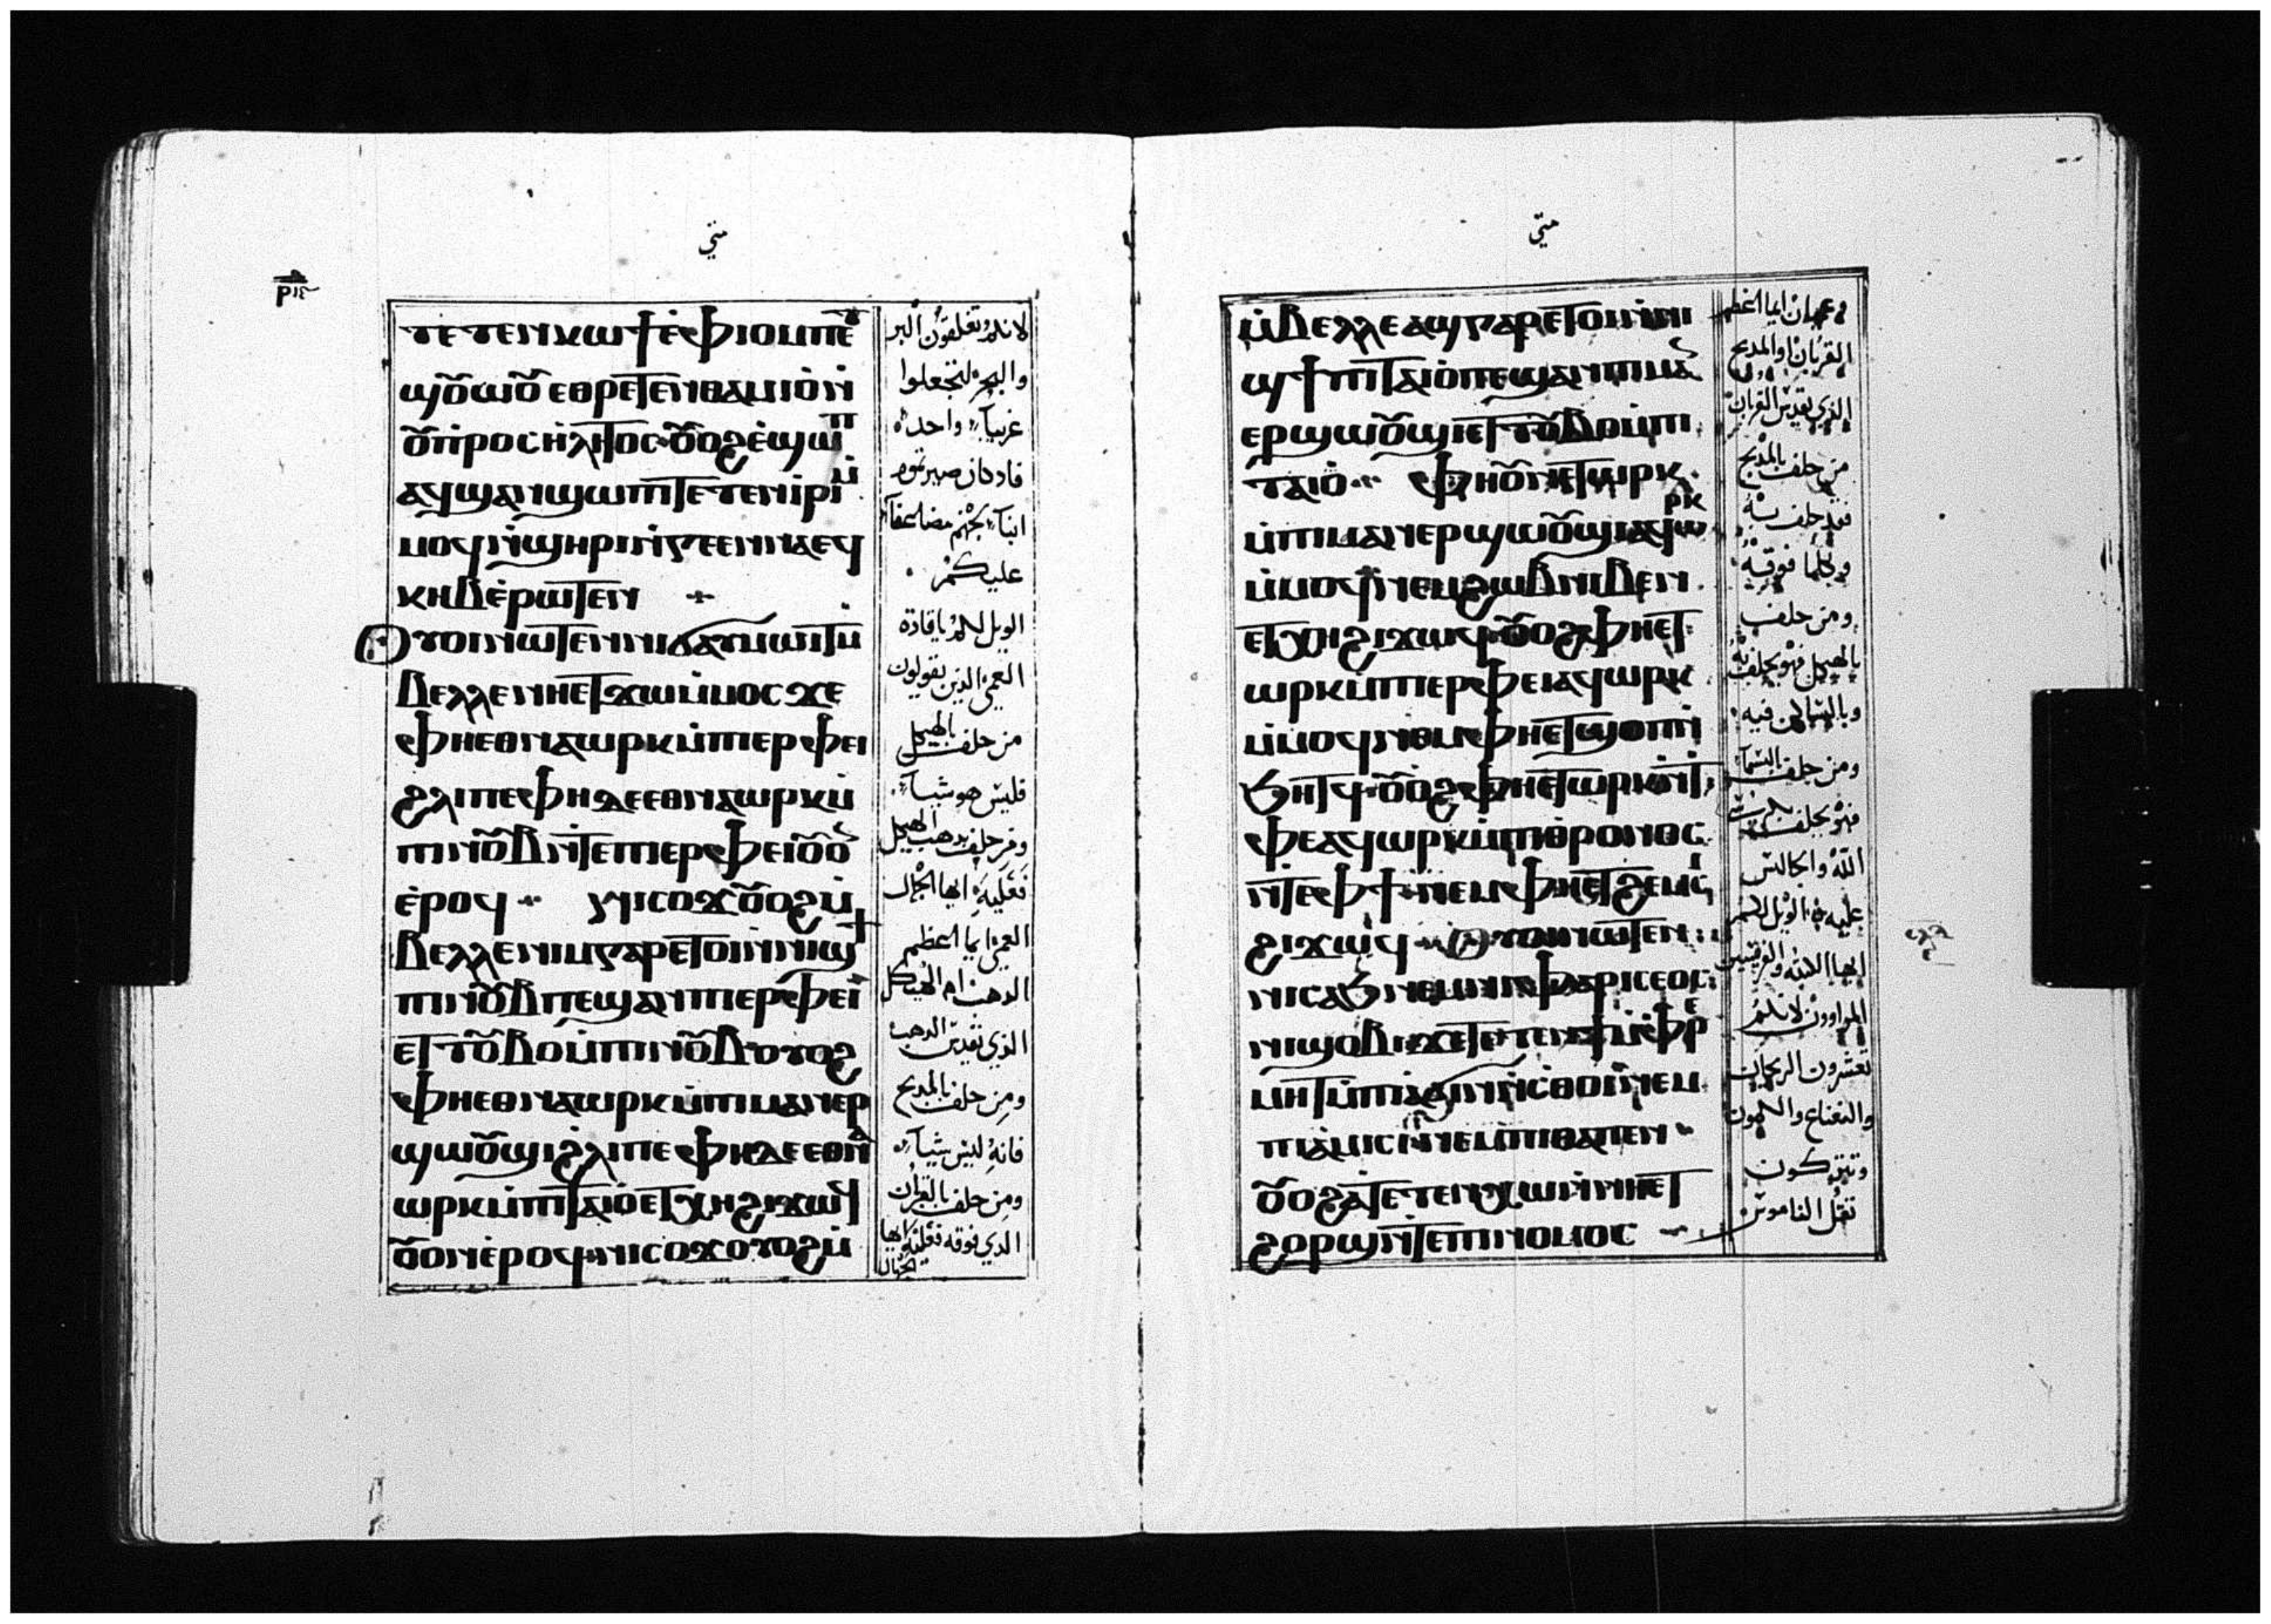 متي
ⲧⲉⲧⲉⲛⲕⲱϯ ⲉ̀ⲫⲓⲟⲙ ⲡⲉⲙ
ϣⲟⲩⲱⲟⲩ ⲉⲑⲣⲉⲧⲉⲛⲑⲁⲙⲓⲟ ⲛ̀
ⲟⲩⲡⲣⲟⲥⲏⲗⲏⲧⲟⲥ ⲟⲩⲟϩ ⲉ̀ϣⲱⲡ
ⲁϥϣⲁⲛϣⲱⲡⲓ ⲧⲉⲧⲉⲛⲓⲣⲓ ⲙ̀
ⲙⲟϥ ⲛ̀ϣⲏⲣⲓ ⲛ̀ⲅⲉⲉⲛⲛⲁ ⲉϥ
ⲕⲏⲃ ⲉ̀ⲣⲱⲧⲉⲛ
ⲟⲩⲟⲓ ⲛⲱⲧⲉⲛ ⲛⲓϭⲁⲩⲙⲱⲓⲧ ⲙ̀
ⲃⲉⲗⲗⲉ ⲛⲏⲉⲧϫⲱ ⲙ̀ⲙⲟⲥ ϫⲉ
ⲫⲏⲉⲑⲛⲁⲱⲣⲕ ⲙ̀ⲡⲓⲉⲣⲫⲉⲓ
ϩⲗⲓ ⲡⲉ ⲫⲏ ⲇⲉ ⲉⲑⲛⲁⲱⲣⲕ ⲙ̀
ⲡⲓⲛⲟⲩⲃ ⲛ̀ⲧⲉ ⲡⲓⲉⲣⲫⲉⲓ ⲟⲩⲟⲛ
ⲉ̀ⲣⲟϥ ⲛⲓⲥⲟϫ ⲟⲩⲟϩ ⲙ̀
ⲃⲉⲗⲗⲉ ⲛⲓⲙ ⲅⲁⲣ ⲉⲧⲟⲓ ⲛ̀ⲛⲓϣϯ
ⲡⲓⲛⲟⲩⲃ ⲡⲉ ϣⲁⲛ ⲡⲓⲉⲣⲫⲉⲓ
ⲉⲧⲧⲟⲩⲃⲟ ⲙ̀ⲡⲓⲛⲟⲩⲃ ⲟⲩⲟϩ
ⲫⲏⲉⲑⲛⲁⲱⲣⲕ ⲙ̀ⲡⲓⲙⲁⲛⲉⲣ
ϣⲱⲟⲩϣⲓ ϩⲗⲓ ⲡⲉ ⲫⲏ ⲇⲉ ⲉⲑⲛⲁ
ⲱⲣⲕ ⲙ̀ⲡⲓⲧⲁⲓⲟ ⲉⲧⲭⲏ ϩⲓϫⲱϥ
ⲟⲩⲟⲛ ⲉ̀ⲣⲟϥ ⲛⲓⲥⲟϫ ⲟⲩⲟϩ ⲙ̀
لانكم تطلقون البر
والبحر لتجعلوا
غريبا واحدا
عليكم
الويل لكم يا قادة
العمي الذين يقولون
من حلف بالهيكل
فليس هو شيا
ومن حلف بدهب الهيكل
فعليه ايها الجهال
العمي ايما اعظم
الدهب ام الهيكل
الذي يقدس الدهب
ومن حلف بالمدبح
فانه ليس شيا
ومن حلف بالقربان
الذي فوقه فعليه ايها
الجهال
متي
ⲙ̀ⲃⲉⲗⲗⲉ ⲁϣ ⲅⲁⲣ ⲉⲧⲟⲓ ⲛ̀ⲛⲓ
ϣϯ ⲡⲓⲧⲁⲓⲟ ⲡⲉ ϣⲁⲛ ⲡⲓⲙⲁⲛ
ⲉⲣϣⲱⲟⲩϣⲓ ⲉⲧⲧⲟⲩⲃⲟ ⲙ̀ⲡⲓ
ⲧⲁⲓⲟ ⲫⲏ ⲟⲩⲛ ⲉⲧⲱⲣⲕ
ⲙ̀ⲡⲓⲙⲁⲛⲉⲣϣⲱⲟⲩϣⲓ ⲁϥⲱⲣⲕ
ⲙ̀ⲙⲟϥ ⲛⲉⲙ ϩⲱⲃ ⲛⲓⲃⲉⲛ
ⲉⲧⲭⲏ ϩⲓϫⲱϥ ⲟⲩⲟϩ ⲫⲏⲉⲧ
ⲱⲣⲕ ⲙ̀ⲡⲓⲉⲣⲫⲉⲓ ⲁϥⲱⲣⲕ
ⲙ̀ⲙⲟϥ ⲛⲉⲙ ⲫⲏⲉⲧϣⲟⲡ ⲛ̀
ϧⲏⲧϥ ⲟⲩⲟϩ ⲫⲏⲉⲧⲱⲣⲕ ⲛ̀ⲧ
ⲫⲉ ⲁϥⲱⲣⲕ ⲙ̀ⲡⲓⲑⲣⲟⲛⲟⲥ
ⲛ̀ⲧⲉ ⲫϯ ⲛⲉⲙ ⲫⲏⲉⲧϩⲉⲙⲥⲓ
ϩⲓϫⲱϥ ⲟⲩⲟⲓ ⲛⲱⲧⲉⲛ
ⲛⲓⲥⲁϧ ⲛⲉⲙ ⲛⲓⲫⲁⲣⲓⲥⲉⲟⲥ
ⲛⲓϣⲟⲃⲓ ϫⲉ ⲧⲉⲧⲉⲛϯ ⲙ̀ⲫⲣⲉ
ⲙⲏⲧ ⲙ̀ⲡⲓⲁⲅⲓⲛⲛⲓⲥⲑⲟⲓ ⲛⲉⲙ
ⲡⲓⲁⲙⲓⲥⲓ ⲛⲉⲙ ⲡⲓⲑⲁⲡⲉⲛ
ⲟⲩⲟϩ ⲁⲧⲉⲧⲉⲛⲭⲱ ⲛ̀ⲛⲏⲉⲧ
ϩⲟⲣϣ ⲛ̀ⲧⲉ ⲡⲓⲛⲟⲙⲟⲥ
وعميان ايما اعظم
القربان او المدبح
الذي يقدس القربان
من حلف بالمدبح
فقد حلف به
وبكلما فوقه
ومن حلف
بالهيكل فهو يحلف به
وبالساكن فيه
ومن حلف بالسما
فهو يحلف بكرسي
الله والجالس
عليه الويل لكم
ايها الكتبه والفريسيين
المراوون لانكم
تعشرون الريحان
والنعناع والكمون
وتتركون
ثقل الناموس